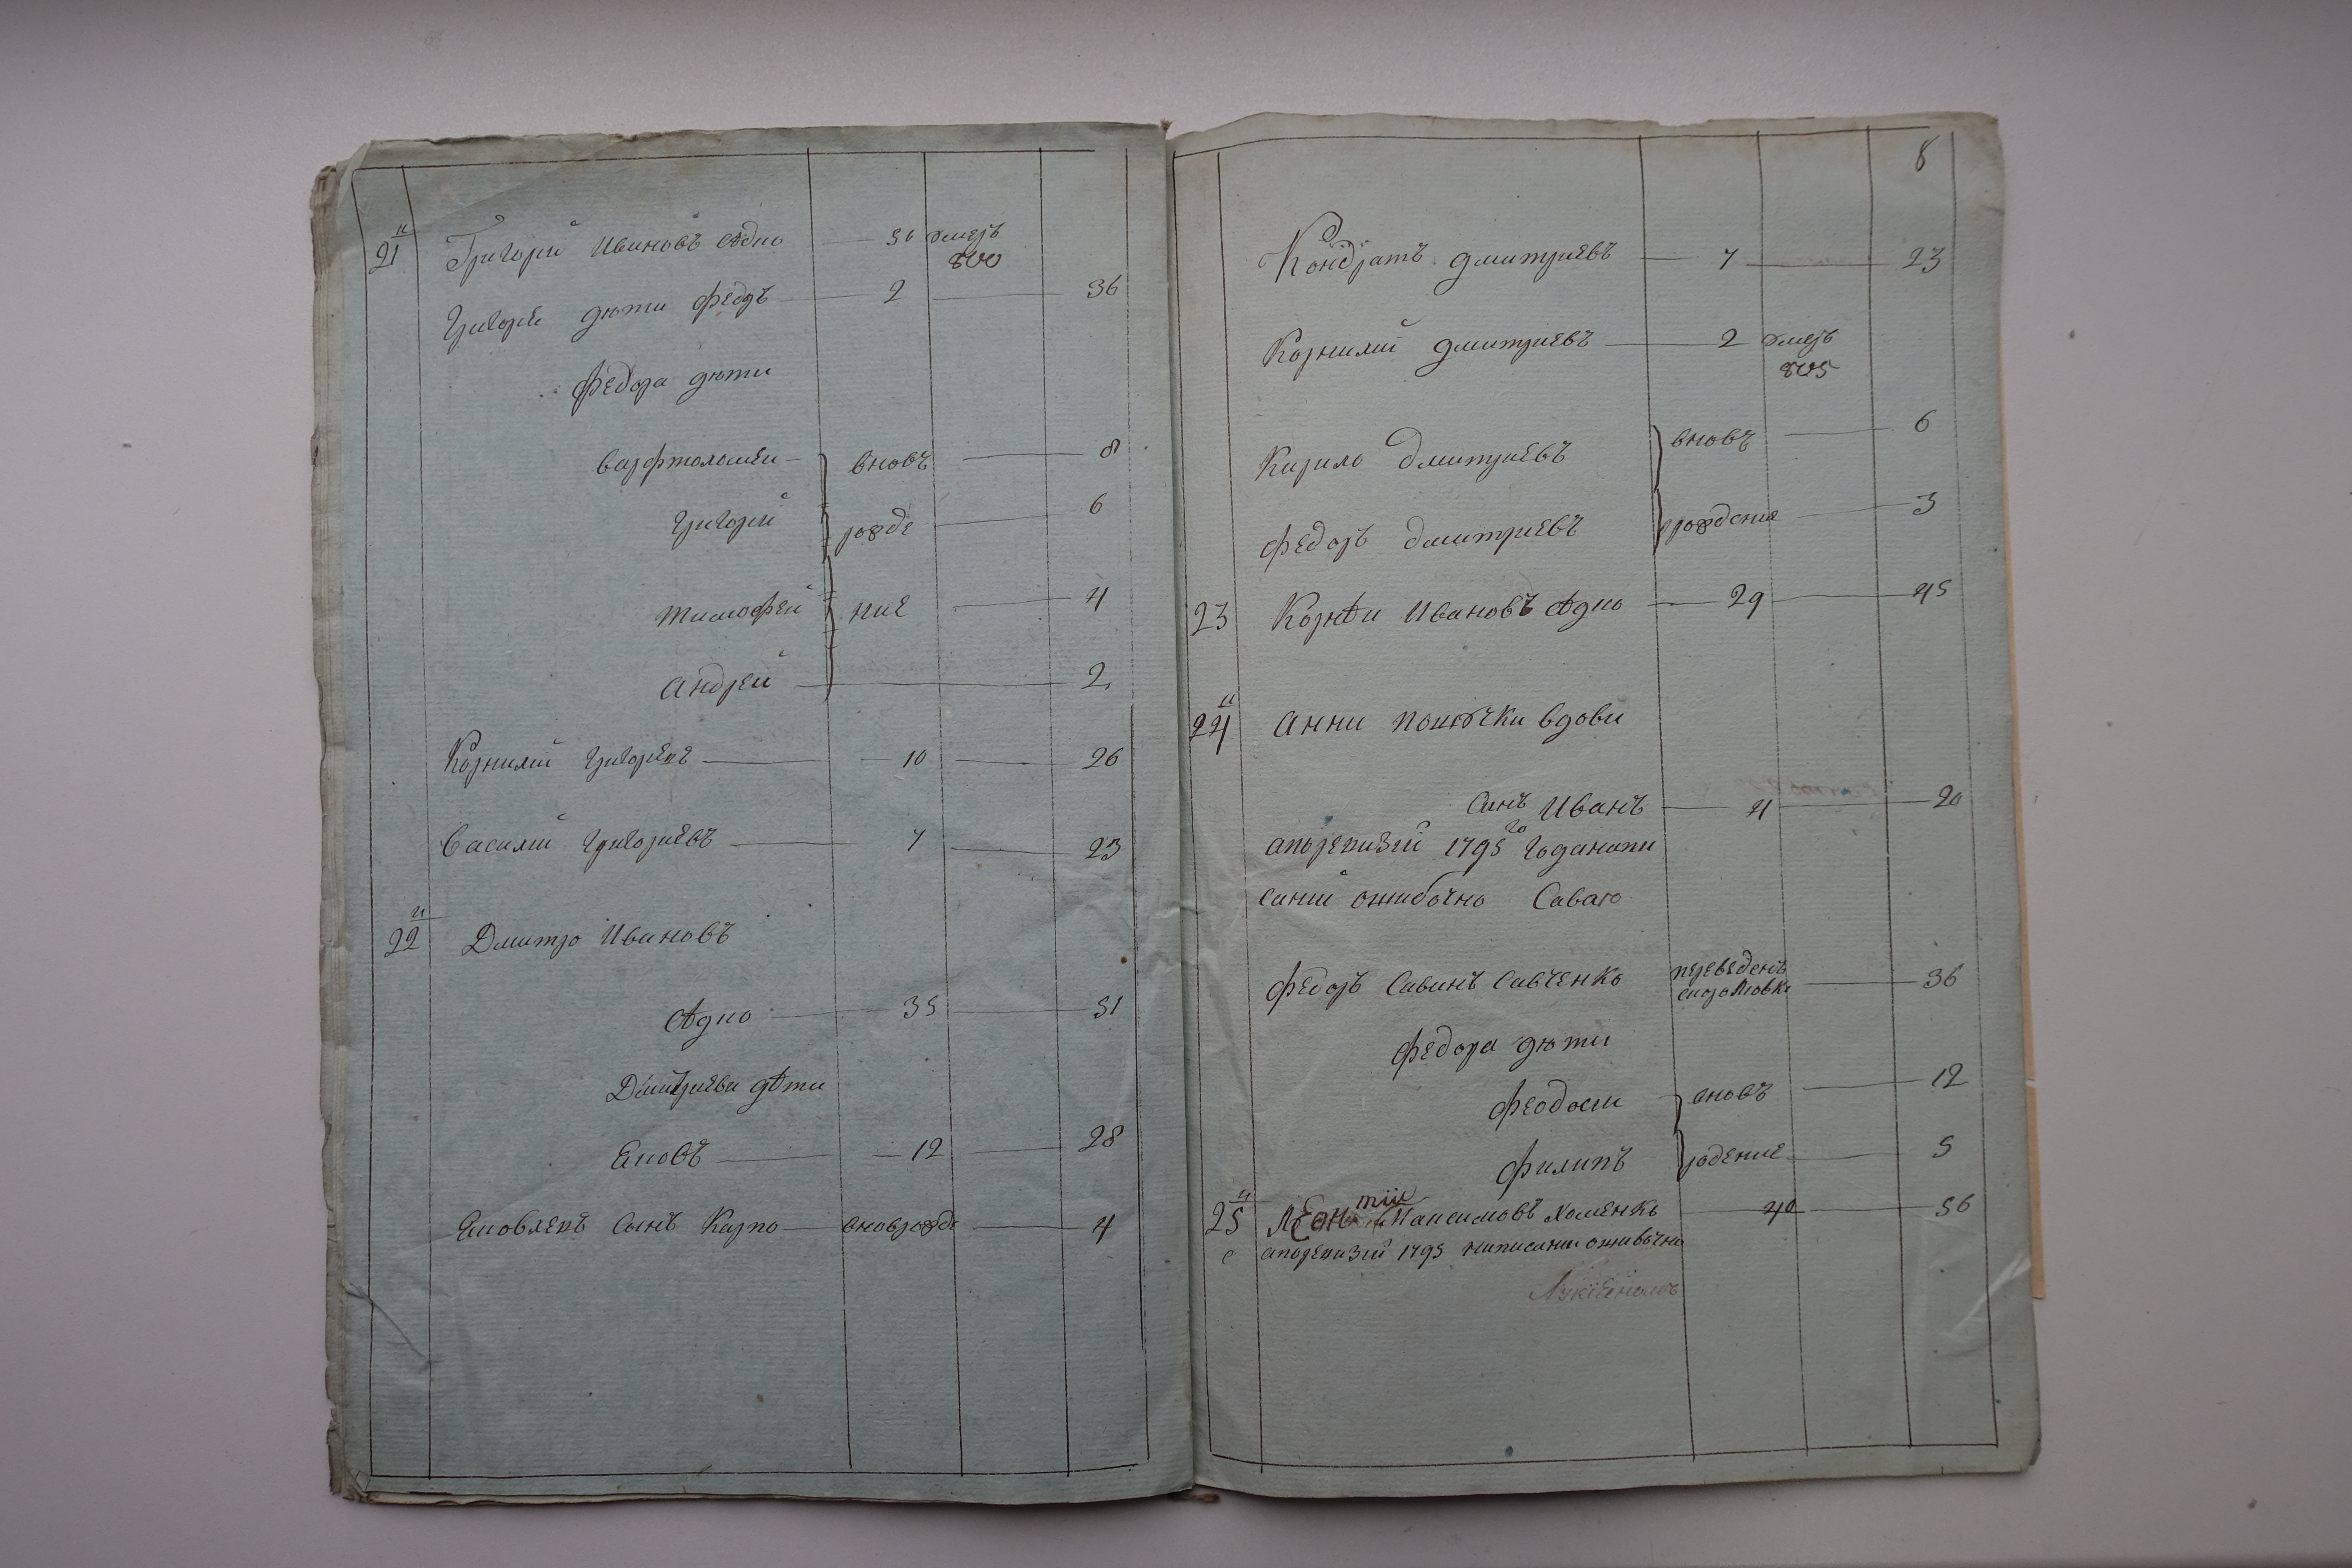 21й Григорій Ивановъ Ѣдно 50 умеръ
800
Григоріе дѣти Федоръ 2 36
Федора дѣти
Варфтоломеи вновь 8
Григорій рожде 6
Тимофей ние 4
Андрей 2
Корнилій Григориевъ 10 26
Василий Григориевъ 7 23
22й Дмитро Ивановъ
Ѣдно 35 51
Дмитриева дѣти
Яковъ 12 28
Яковлевъ Сынъ Карпо вноврожде 4
8
Кондратъ Дмитриевъ 7 23
Корнилий Дмитриевъ 2 умеръ
805
Кирило Дмитриевъ вновь 6
Федоръ Дмитриевъ рождение 3
23 Корнѣи Ивановъ Ѣдно 29 45
24й Анни вдови
Синъ Иванъ 4 20
апоревизій 1795го Годанапи
саний ошибочно Савою
Федоръ Савинъ Савченко переведенъ 36
Федора дѣти
Феодосии вновь 12
Филипъ рдение 5
25й Леонтии Максимовъ Хоменко 40 56
апоревизий 1795 написании ошибочно
Лукіяномъ